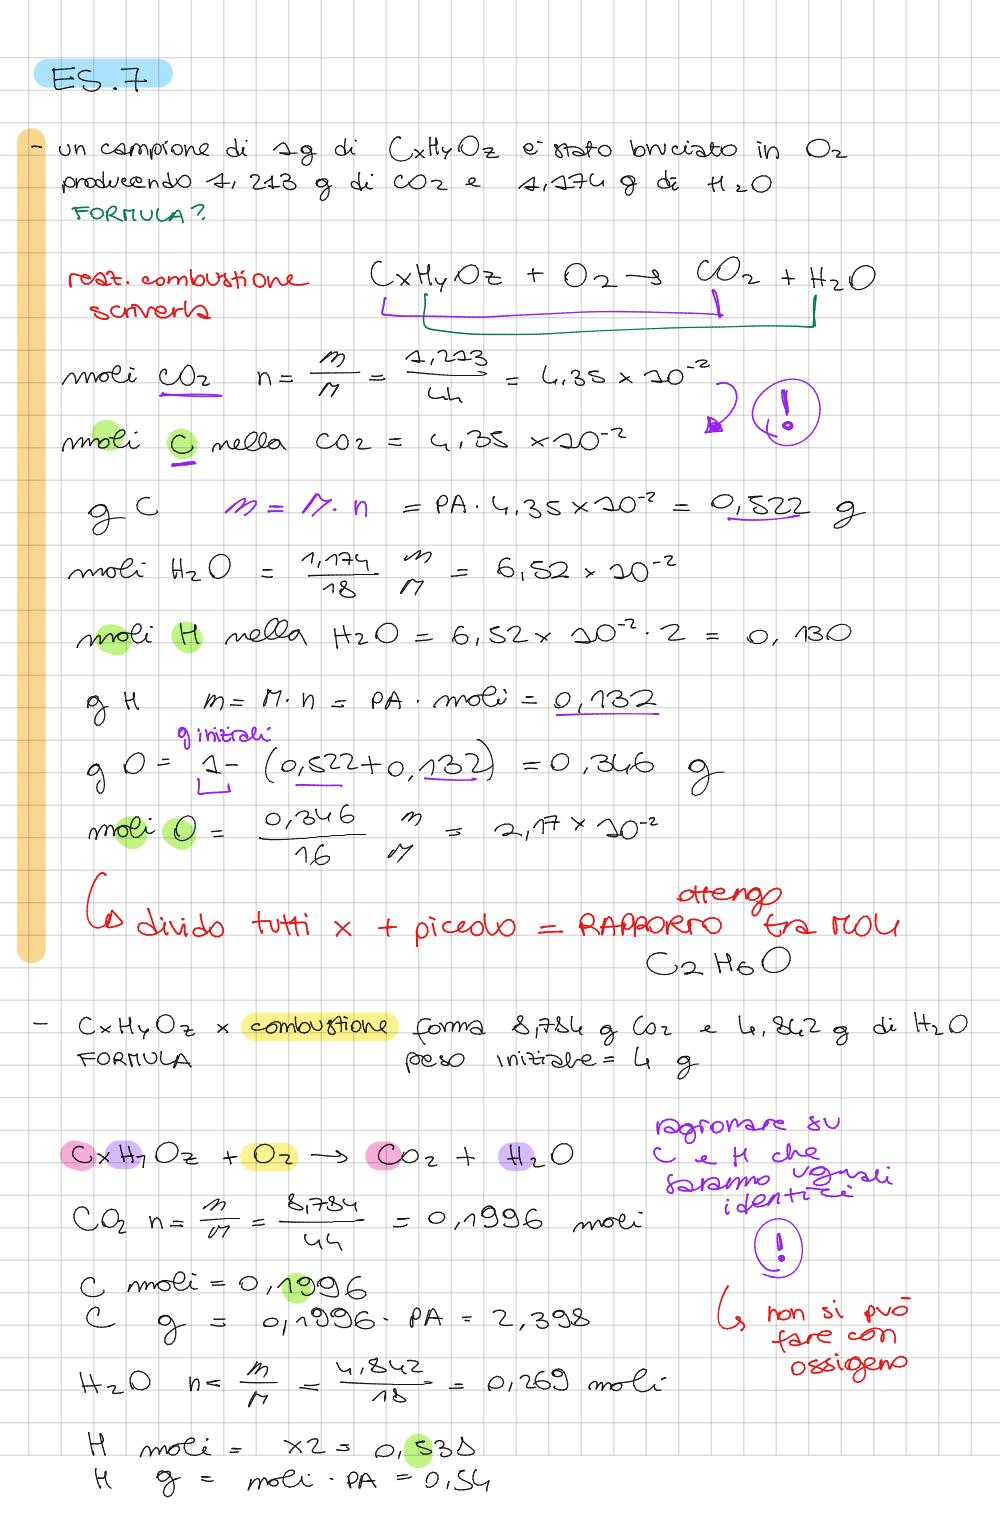 ES.7
- un campione di 1g di CxHyOz è stato bruciato in O2
producendo 1,213 g di CO2 e 1,174 g di H2O
FORMULA?
reaz. combustione CxHyOz + O2 → CO2 + H2O
scriverla
moli CO2 n = m/M = 1,213/44 = 4,35 × 10⁻²
!
moli C nella CO2 = 4,35 × 10⁻²
g C m = M · n = PA · 4,35 × 10⁻² = 0,522 g
moli H2O = 1,174/18 m/M = 6,52 × 10⁻²
moli H nella H2O = 6,52 × 10⁻² · 2 = 0,130
g H m = M · n = PA · moli = 0,132
g iniziali
g O = 1 - (0,522 + 0,132) = 0,346 g
moli O = 0,346/16 m/M = 2,17 × 10⁻²
ottengo
↳ divido tutti x + piccolo = RAPPORTO tra MOLI
C2H6O
- CxHyOz x combustione forma 8,784 g CO2 e 4,842 g di H2O
FORMULA peso iniziale = 4 g
ragionare su
C e H che
saranno uguali
identici
!
↳ non si può
fare con
ossigeno
CxHyOz + O2 → CO2 + H2O
CO2 n = m/M = 8,784/44 = 0,1996 moli
C moli = 0,1996
C g = 0,1996 · PA = 2,398
H2O n = m/M = 4,842/18 = 0,269 moli
H moli = x2 = 0,538
H g = moli · PA = 0,54